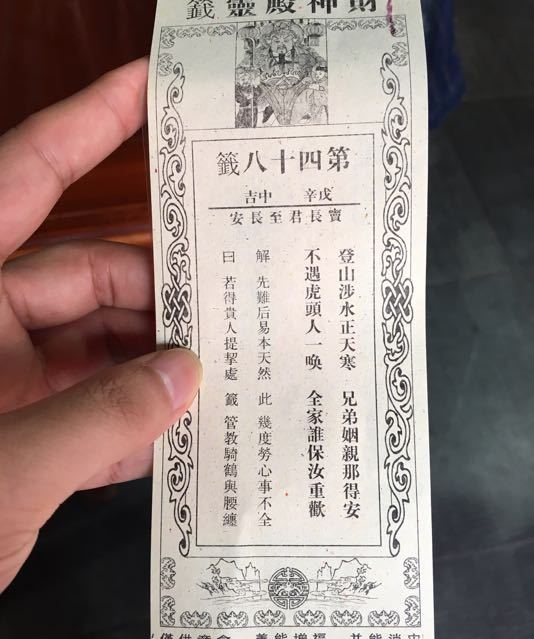 財神殿靈籤
第四十八籤
戊辛 中吉
賣長君至長安
登山涉水正天寒 兄弟姻親那得安
不遇虎頭人一喚 全家誰保汝重歡
解 先難后易本天然 此 幾度勞心事不全
曰 若得貴人提挈處 籤 管教騎鶴與腰纏